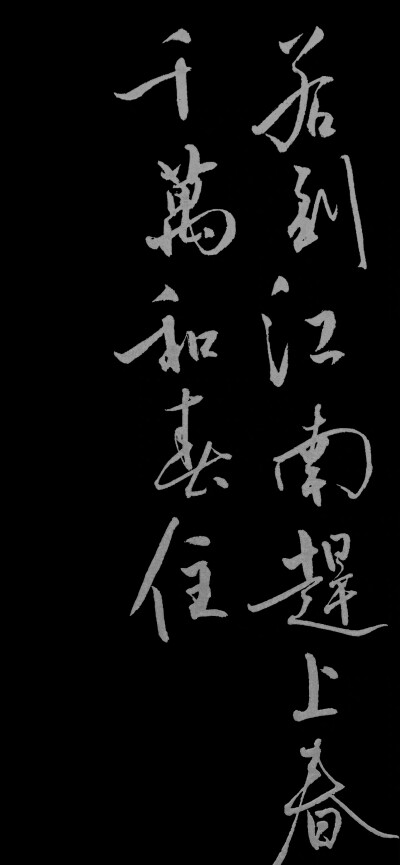 若到江南趕上春
千萬和春住